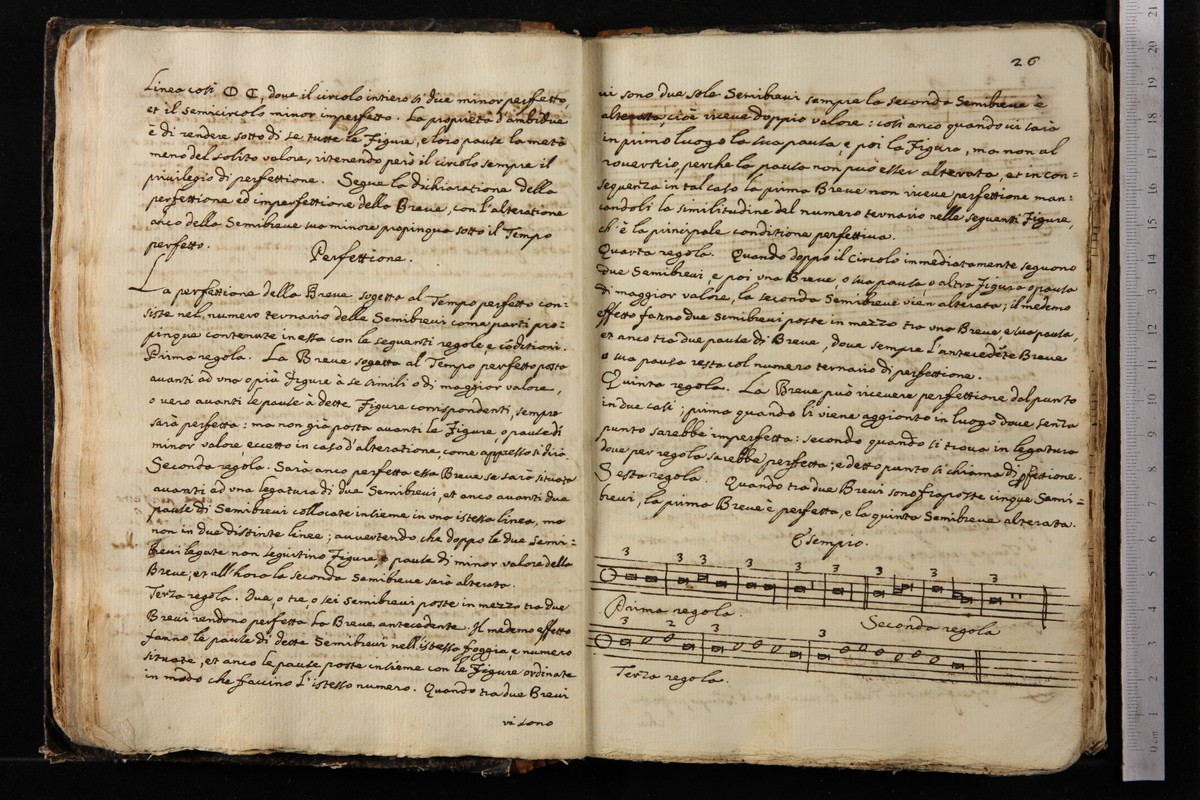 Linea così O C, dove il circolo intiero si dice minor perfetto,
et il semicircolo minor imperfetto. La proprietà d'ambidue
è di rendere sotto di se tutte le Figure, e loro pause la metà
meno del solito valore, ritenendo però il circolo sempre il
privilegio di perfettione. Segue la dichiaratione della
perfettione ed imperfettione della Breve, con l'alteratione
anco della Semibreve sua minore propinqua sotto il Tempo
perfetto.
Perfettione.
La perfettione della Breve sogetta al Tempo perfetto con=
siste nel numero ternario delle Semibrevi come parti pro=
pinque contenute in essa con le seguenti regole, e cōditioni.
Prima regola. La Breve sogetta al Tempo perfetto posta
avanti ad una o più Figure à se simili o di maggior valore,
o vero avanti le pause à dette Figure corrispondenti, sempre
sarà perfetta: ma non già posta avanti le Figure, o pause di
minor valore, eccetto in caso d'alteratione, come appresso si dirà.
Seconda regola. Sarà anco perfetta essa Breve se sarà situata
avanti ad una legatura di due Semibrevi, et anco avanti due
pause di Semibrevi collocate insieme in una istessa linea, ma
non in due distinte linee; avvertendo che doppo le due Semi=
brevi legate non seguitino Figure, o pause di minor valore della
Breve; et all'hora la seconda Semibreve sarà alterata.
Terza regola. Due, o tre, o sei Semibrevi poste in mezzo tra due
Brevi rendono perfetta la Breve antecedente. Il medemo effetto
fanno le pause di dette Semibrevi nell'istessa foggia, e numero
situate, et anco le pause poste insieme con le Figure ordinate
in modo che faccino l'istesso numero. Quando tra due Brevi
vi sono
26
vi sono due sole Semibrevi sempre la seconda Semibreve è
alterata, cioè riceve doppio valore: così anco quando vi sarà
in primo luogo la sua pausa, e poi la Figura, ma non al
rovescio, perche la pausa non può esser alterata, et in con=
sequenza in tal caso la prima Breve non riceve perfettione man=
candoli la similitudine del numero ternario nelle seguenti Figure,
ch'è la principale conditione perfettiva.
Quarta regola. Quando doppo il Circolo immediatamente seguono
due Semibrevi e poi una Breve, o sua pausa o altra Figura o pausa
di maggior valore, la seconda Semibreve vien alterata; il medemo
effetto fanno due Semibrevi poste in mezzo tra una Breve e sua pausa,
et anco tra due pause di Breve, dove sempre l'antecedēte Breve
o sua pausa resta col numero ternario di perfettione.
Quinta regola. La Breve può ricevere perfettione dal punto
in due casi; prima quando li viene aggionto in luogo dove senza
punto sarebbe imperfetta: secondo quando si trova in legatura
dove per regola sarebbe perfetta; e detto punto si chiama di pfettione.
Sesta regola. Quando tra due Brevi sono fraposte cinque Semi=
brevi, la prima Breve è perfetta, e la quinta Semibreve alterata.
Esempio.
3 3 3 3 3 3 3 3 3
Prima regola. Seconda regola
3 2 3 3
Terza regola.